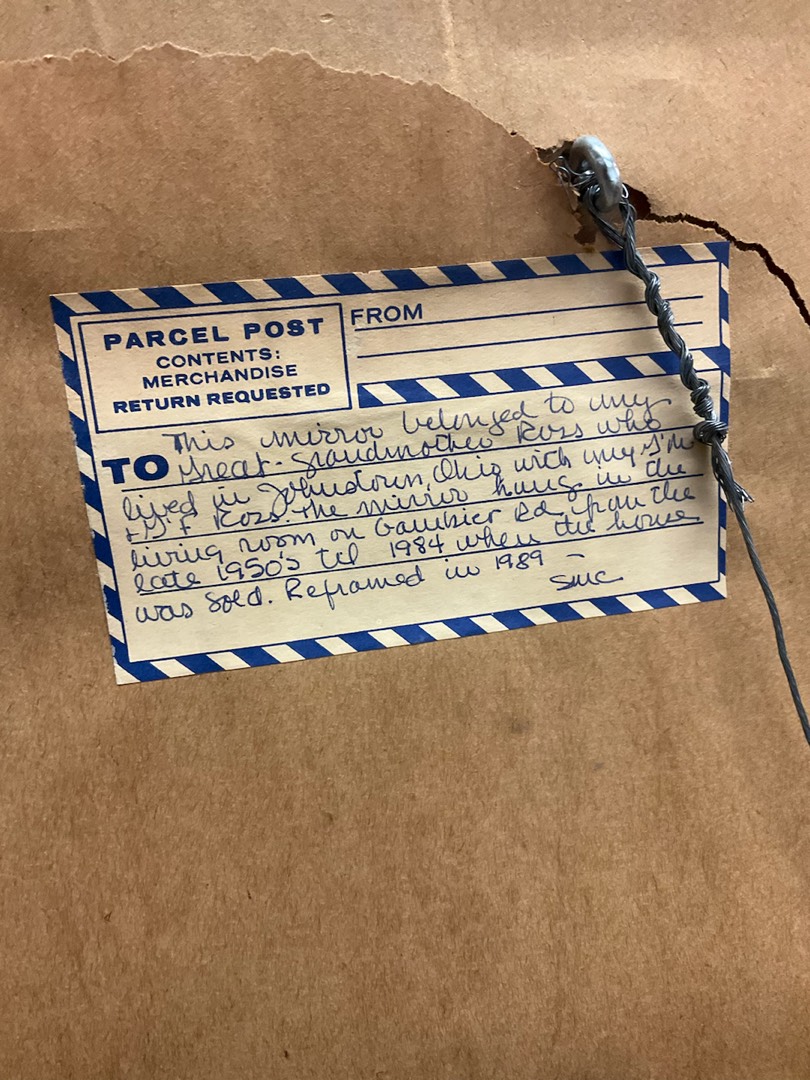 PARCEL POST
CONTENTS:
MERCHANDISE
RETURN REQUESTED
FROM
TO
This mirror belonged to my
Great-Grandmother Ross who
lived in Johnstown, Ohio with my
Ross. The mirror hung in the
living room on Gambier Rd. from the
late 1950's til 1984 when the house
was sold. Reframed in 1989 –
SMC